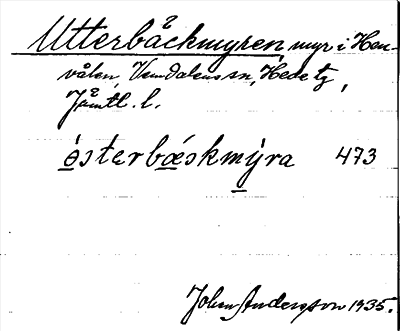 Utterbäckmyren, myr i Hen-
vålen, Vemdalens sn, Hede tg,
Jämtl. l.
òsterbǽskmýra 473
Johan Andersson 1935.